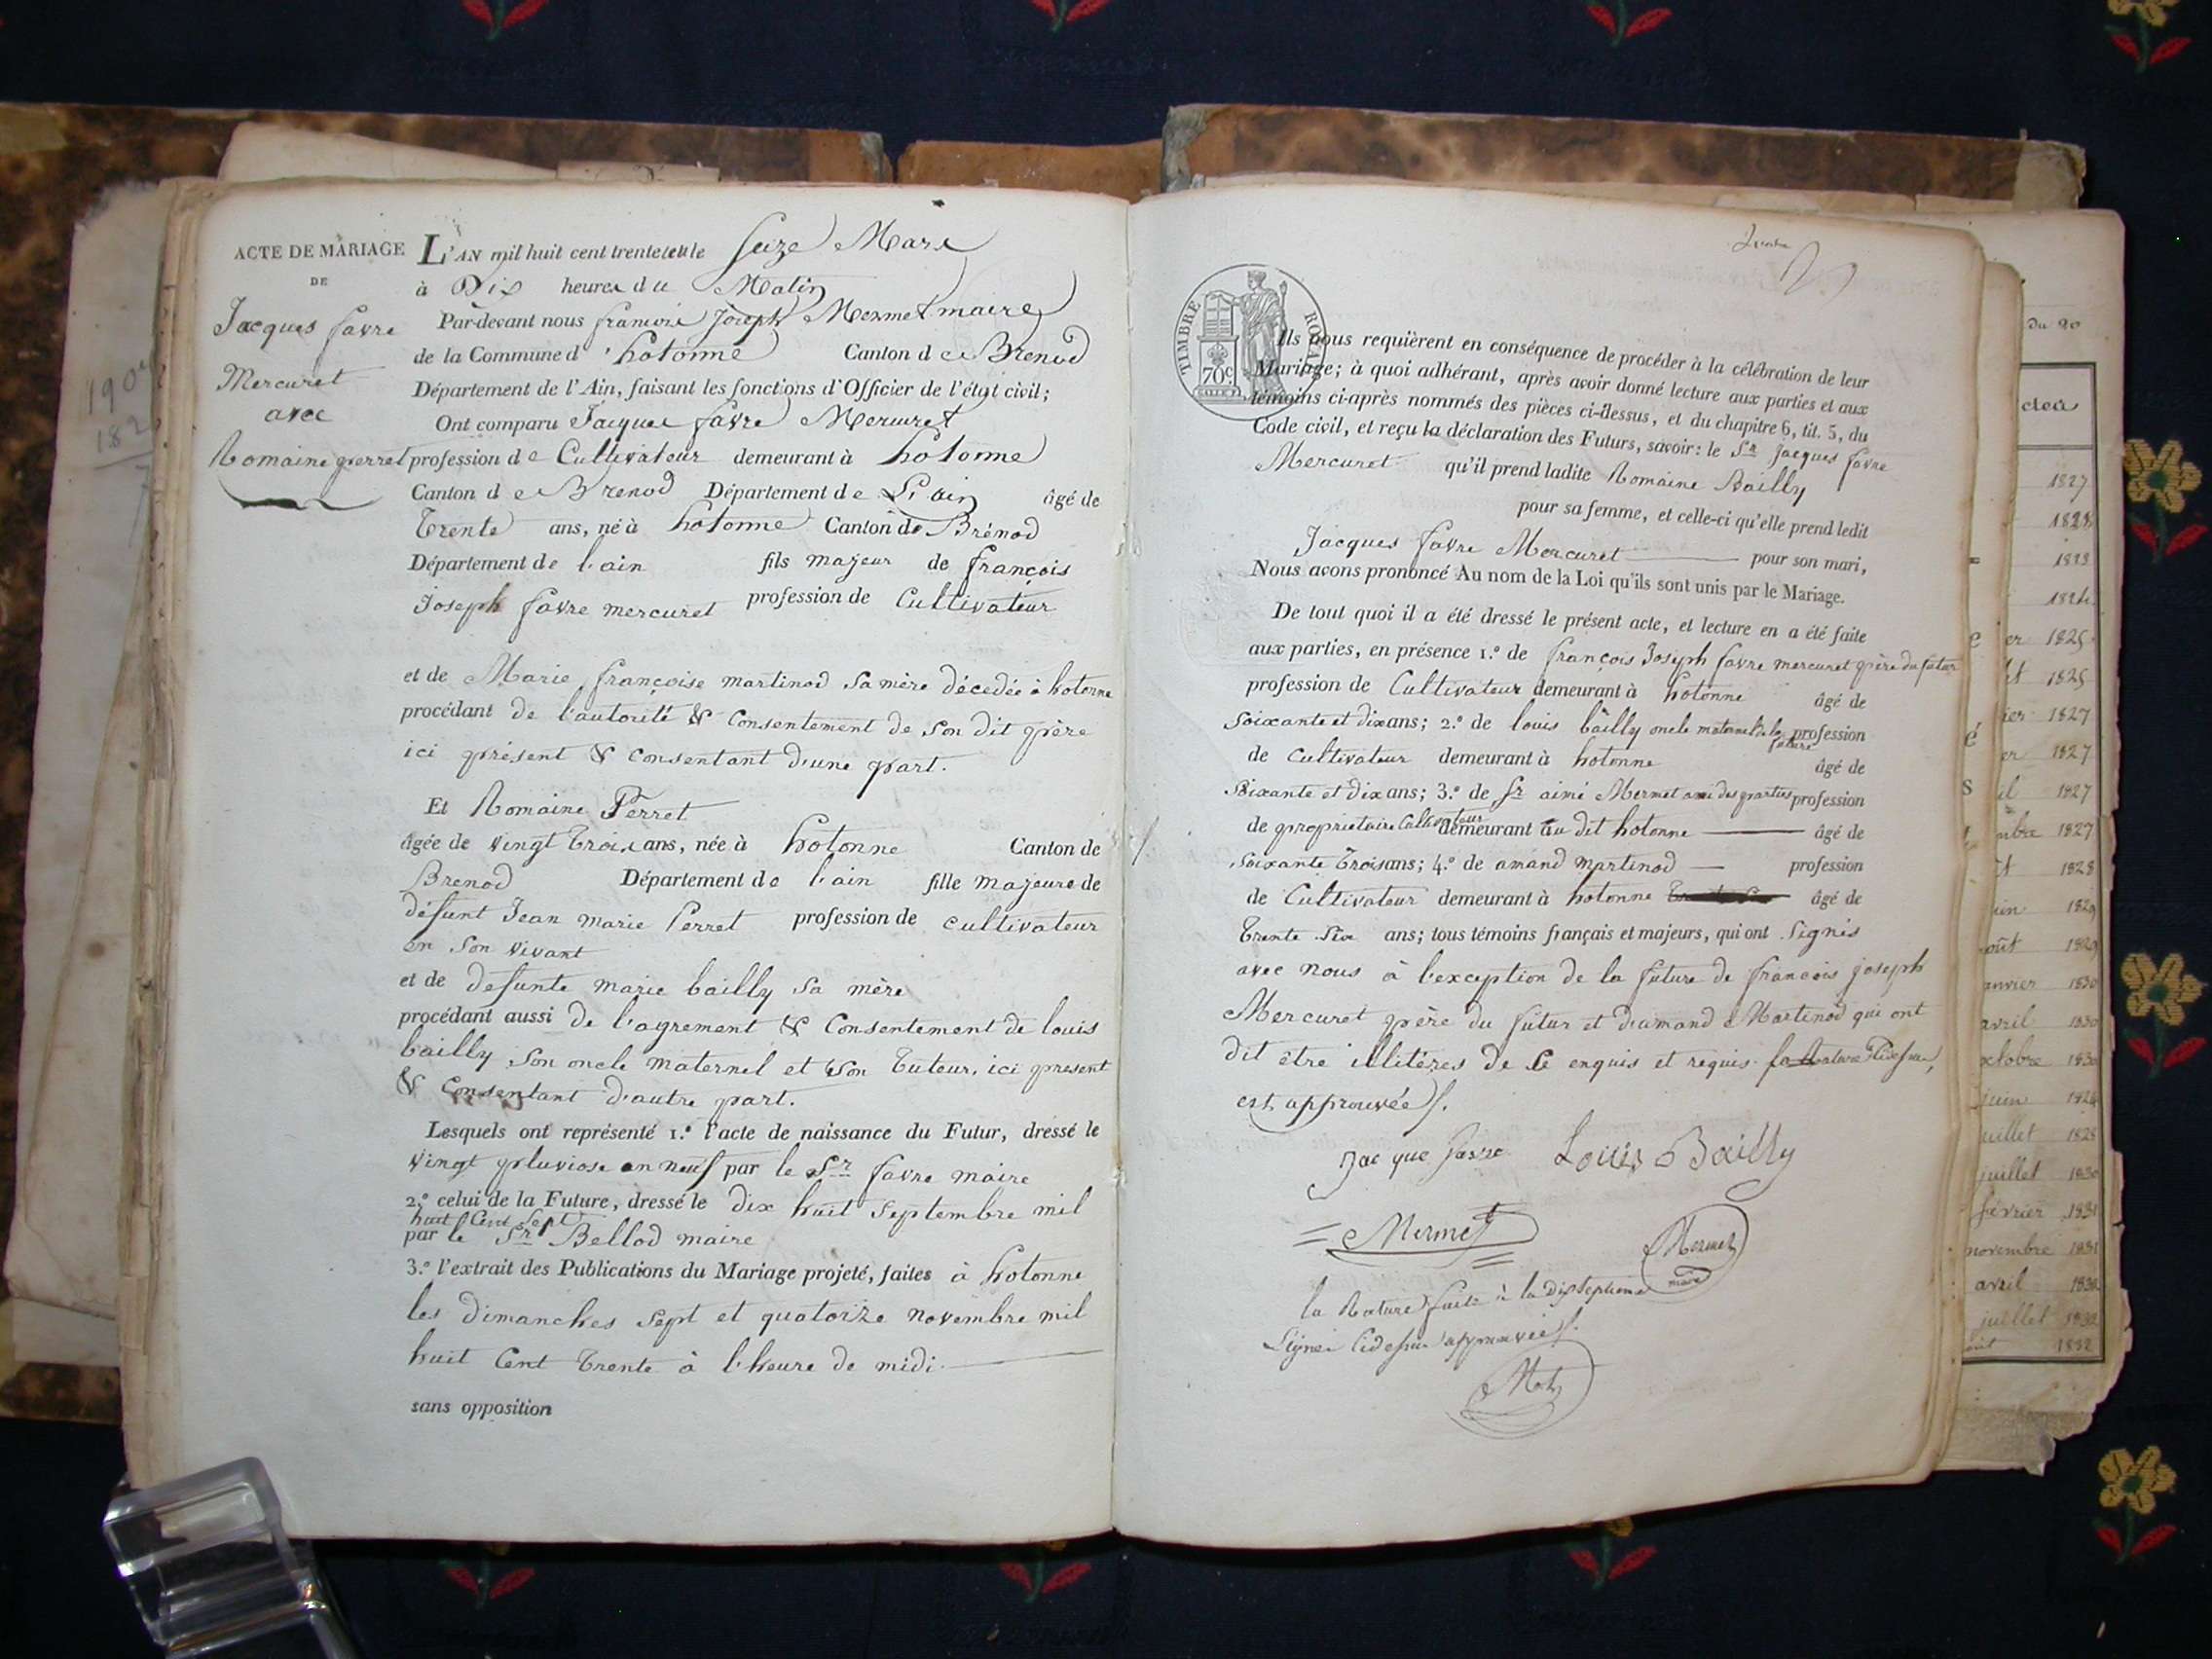 ACTE DE MARIAGE
DE
Jacques favre
Mercuret
avec
Romaine perret
L'AN mil huit cent trente et un le Seize Mars
à Dix heures du Matin
Par-devant nous francois Joseph Mermet maire
de la Commune d'hotonne Canton de Brenod
Département de l'Ain, faisant les fonctions d'Officier de l'état civil;
Ont comparu Jacques favre Mercuret
profession de Cultivateur demeurant à hotonne
Canton de Brenod Département de L'ain âgé de
Trente ans, né à hotonne Canton de Brénod
Département de l'ain fils majeur de françois
Joseph favre mercuret profession de Cultivateur
et de Marie françoise martinod Sa mère décedée à hotonne
procédant de l'autorité & Consentement de Son dit père
ici présent & Consentant d'une part.
Et Romaine Perret
âgée de vingt Trois ans, née à hotonne Canton de
Brenod Département de l'ain fille majeure de
défunt Jean marie Perret profession de cultivateur
en Son vivant
et de defunte marie bailly Sa mère
procédant aussi de l'agrement & Consentement de louis
bailly Son oncle maternel et Son Tuteur, ici present
& Consentant d'autre part.
Lesquels ont représenté 1.º l'acte de naissance du Futur, dressé le
vingt pluviose an neuf par le Sr favre maire
2.º celui de la Future, dressé le dix huit Septembre mil
huit Cent Sept
par le Sr Bellod maire
3.º l'extrait des Publications du Mariage projeté, faites à hotonne
les dimanches Sept et quatorze novembre mil
huit Cent Trente à l'heure de midi.
sans opposition
TIMBRE ROYAL
70c.
Ils nous requièrent en conséquence de procéder à la célébration de leur
Mariage; à quoi adhérant, après avoir donné lecture aux parties et aux
témoins ci-après nommés des pièces ci-dessus, et du chapitre 6, tit. 5, du
Code civil, et reçu la déclaration des Futurs, savoir: le Sr Jacques favre
Mercuret qu'il prend ladite Romaine Bailly
pour sa femme, et celle-ci qu'elle prend ledit
Jacques favre Mercuret pour son mari,
Nous avons prononcé Au nom de la Loi qu'ils sont unis par le Mariage.
De tout quoi il a été dressé le présent acte, et lecture en a été faite
aux parties, en présence 1.º de françois Joseph favre mercuret père du futur
profession de Cultivateur demeurant à hotonne âgé de
Soixante et dix ans; 2.º de louis bailly oncle maternel de la future profession
de Cultivateur demeurant à hotonne âgé de
Soixante et dix ans; 3.º de Sr aimé Mermet ami des parties profession
de proprietaire Cultivateur demeurant au dit hotonne âgé de
Soixante Trois ans; 4.º de amand martinod profession
de Cultivateur demeurant à hotonne âgé de
Trente Six ans; tous témoins français et majeurs, qui ont Signés
avec nous à l'exception de la future de françois joseph
Mercuret père du futur et d'amand Martinod qui ont
dit être illitéres de Ce enquis et requis. la Rature Cidessus,
est approuvée
Jac que favre Louis Bailly
Mermet
Mermet
maire
la Rature faite à la dix septieme
Ligne Cidessus approuvée
du 20
1827
1828
1825
1825
ier 1827
er 1827
1827
mbre 1827
1828
uin 1829
oût 1829
anvier 1830
avril 1830
octobre 1830
juin
juillet 1828
juillet 1830
février 1831
novembre 1831
avril 1832
juillet 1832
1832